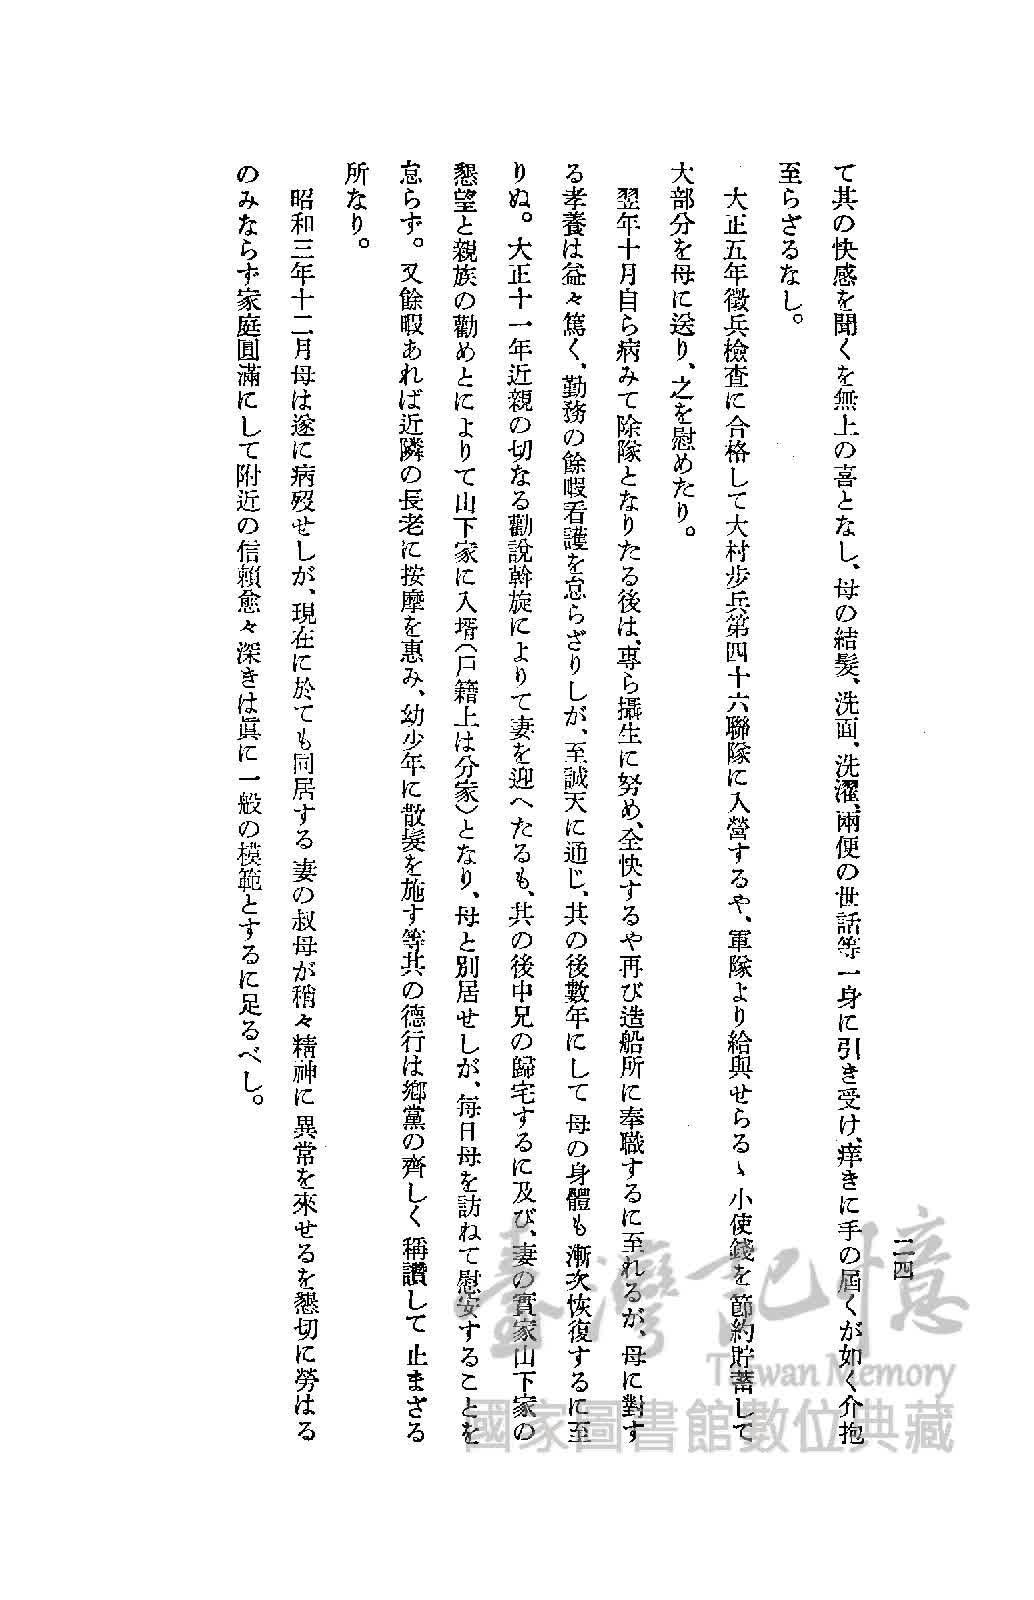 二四
て其の快感を聞くを無上の喜となし、母の結髮、洗面、洗濯、兩便の世話等一身に引き受け、痒きに手の屆くが如く介抱
至らざるなし。
大正五年徵兵檢査に合格して大村步兵第四十六聯隊に入營するや、軍隊より給與せらるゝ小使錢を節約貯蓄して
大部分を母に送り、之を慰めたり。
翌年十月自ら病みて除隊となりたる後は、專ら攝生に努め、全快するや再び造船所に奉職するに至れるが、母に對す
る孝養は益々篤く、勤務の餘暇看護を怠らざりしが、至誠天に通じ、其の後數年にして母の身體も漸次恢復するに至
りぬ。大正十一年近親の切なる勸說斡旋によりて妻を迎へたるも、其の後中兄の歸宅するに及び、妻の實家山下家の
懇望と親族の勸めとによりて山下家に入壻(戶籍上は分家)となり、母と別居せしが、每日母を訪ねて慰安することを
怠らず。又餘暇あれば近隣の長老に按摩を惠み、幼少年に散髮を施す等其の德行は鄕黨の齊しく稱讚して止まざる
所なり。
昭和三年十二月母は遂に病歿せしが、現在に於ても同居する妻の叔母が稍々精神に異常を來せるを懇切に勞はる
のみならず家庭圓滿にして附近の信賴愈々深きは眞に一般の模範とするに足るべし。
臺灣記憶
Taiwan Memory
國家圖書館數位典藏